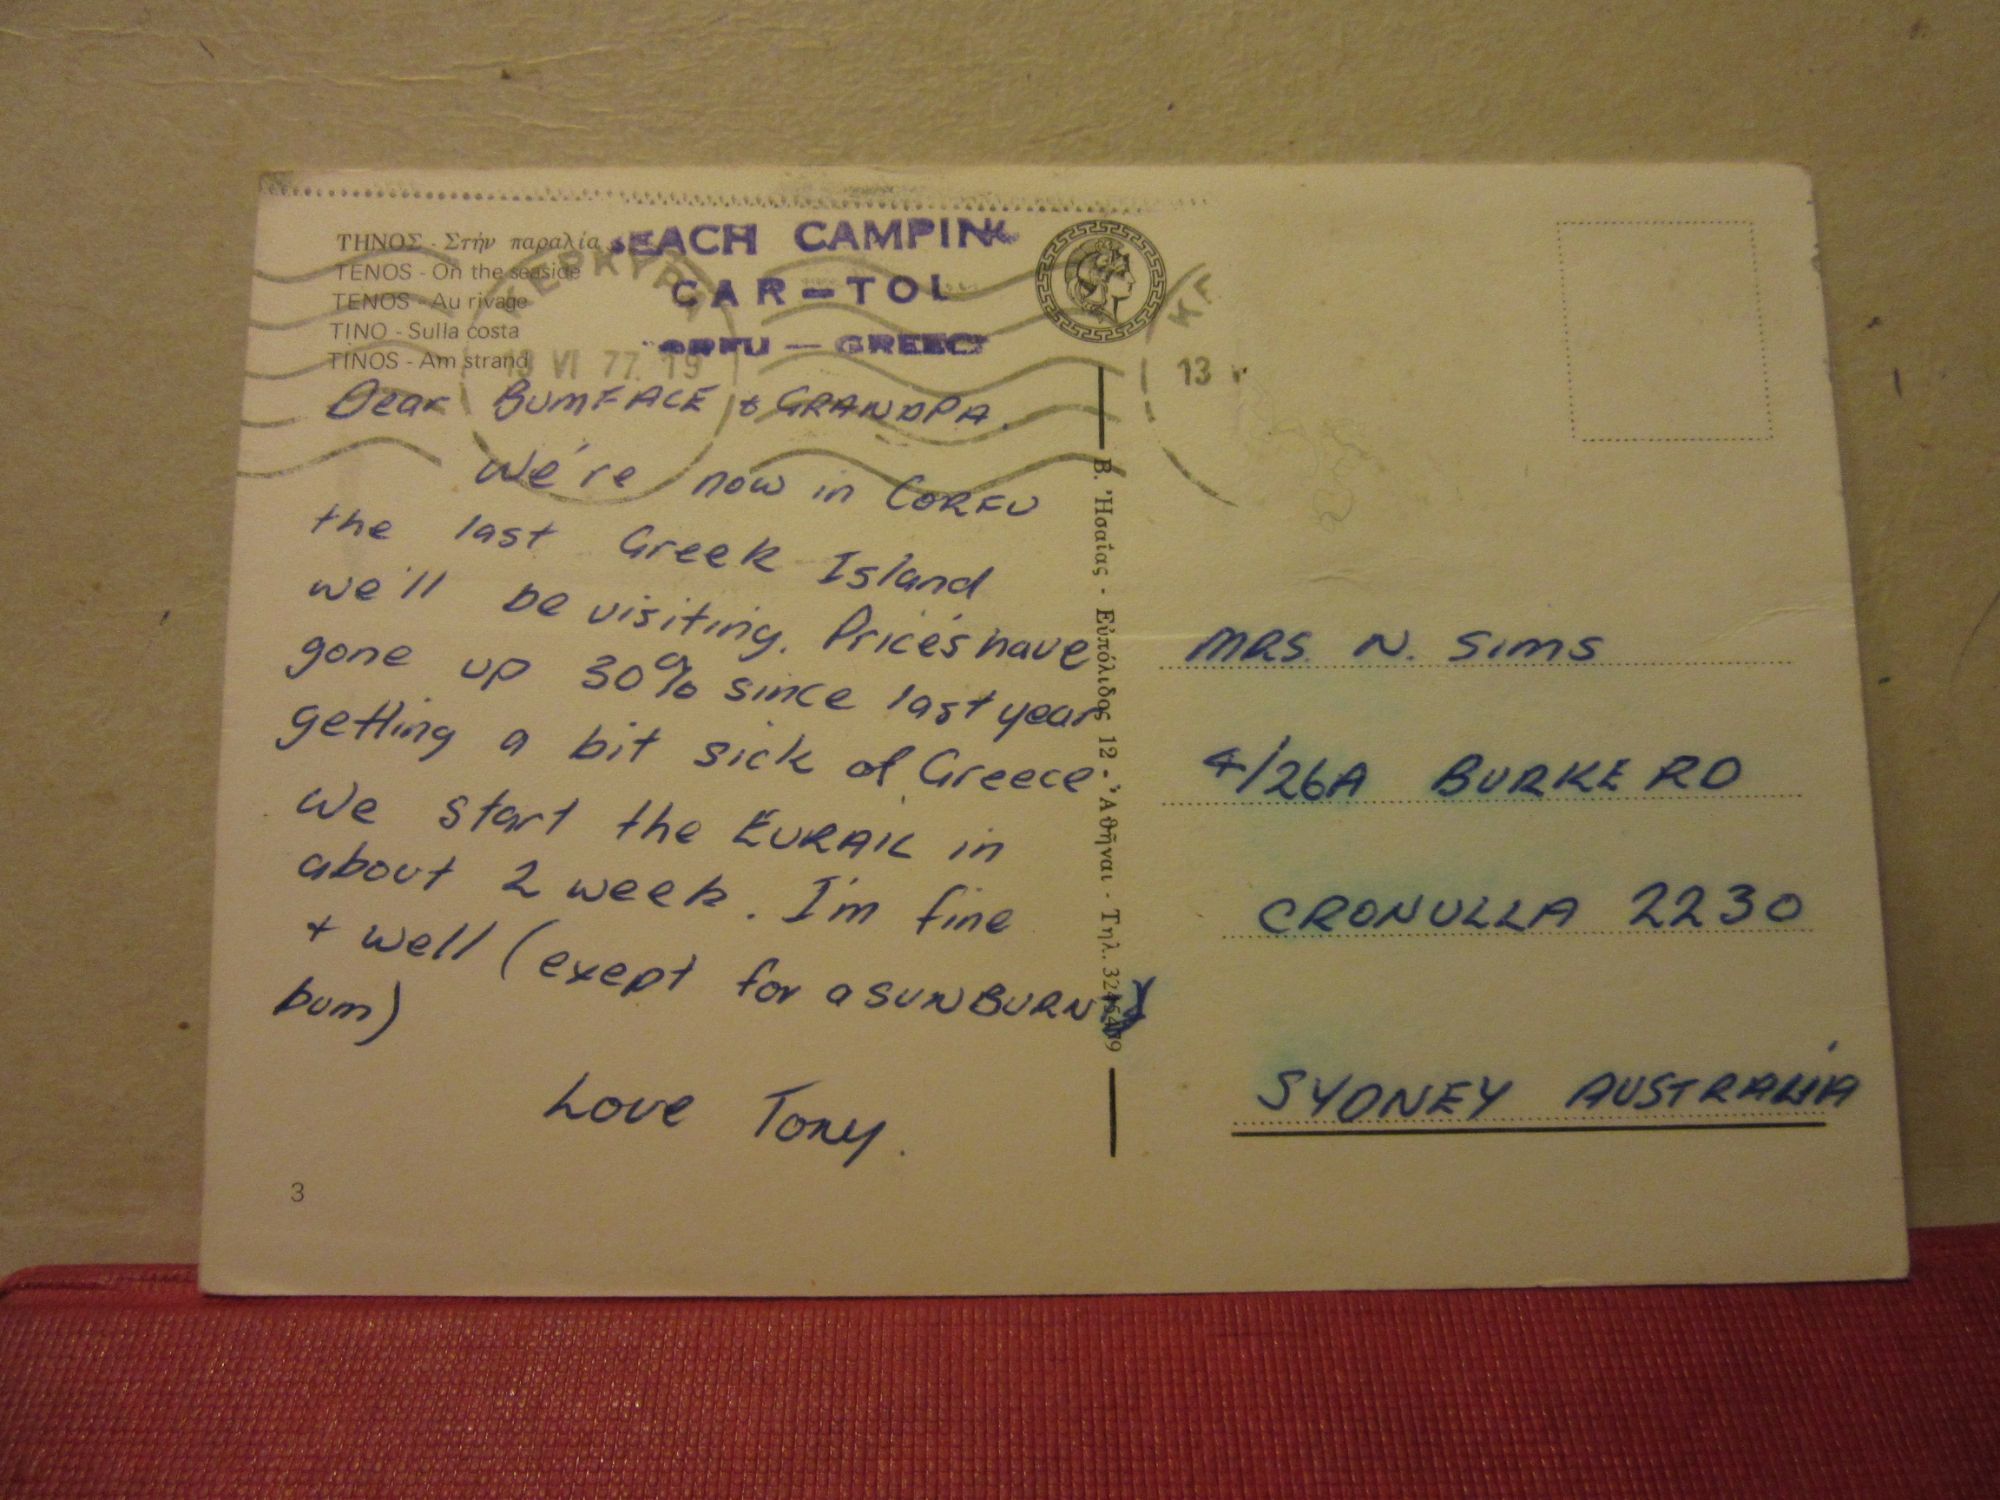 ΤΗΝΟΣ - Στήν παραλία
TENOS - On the seaside
TENOS - Au rivage
TINO - Sulla costa
TINOS - Am strand
EACH CAMPIN
CAR-TOL
GREEC
ΚΕΡΚΥΡΑ
13 VI 77. 19
13
Dear BUMFACE & GRANDPA.
We're now in CORFU
the last Greek Island
we'll be visiting. Prices have
gone up 30% since last year
getting a bit sick of Greece
We start the EURAIL in
about 2 week. I'm fine
+ well (exept for a SUNBURN
bum)
Love Tony.
3
Β. Ἠσαΐας - Εὐπόλιδος 12 - Ἀθῆναι - Τηλ.
MRS. N. SIMS
4/26A BURKE RD
CRONULLA 2230
SYDNEY AUSTRALIA